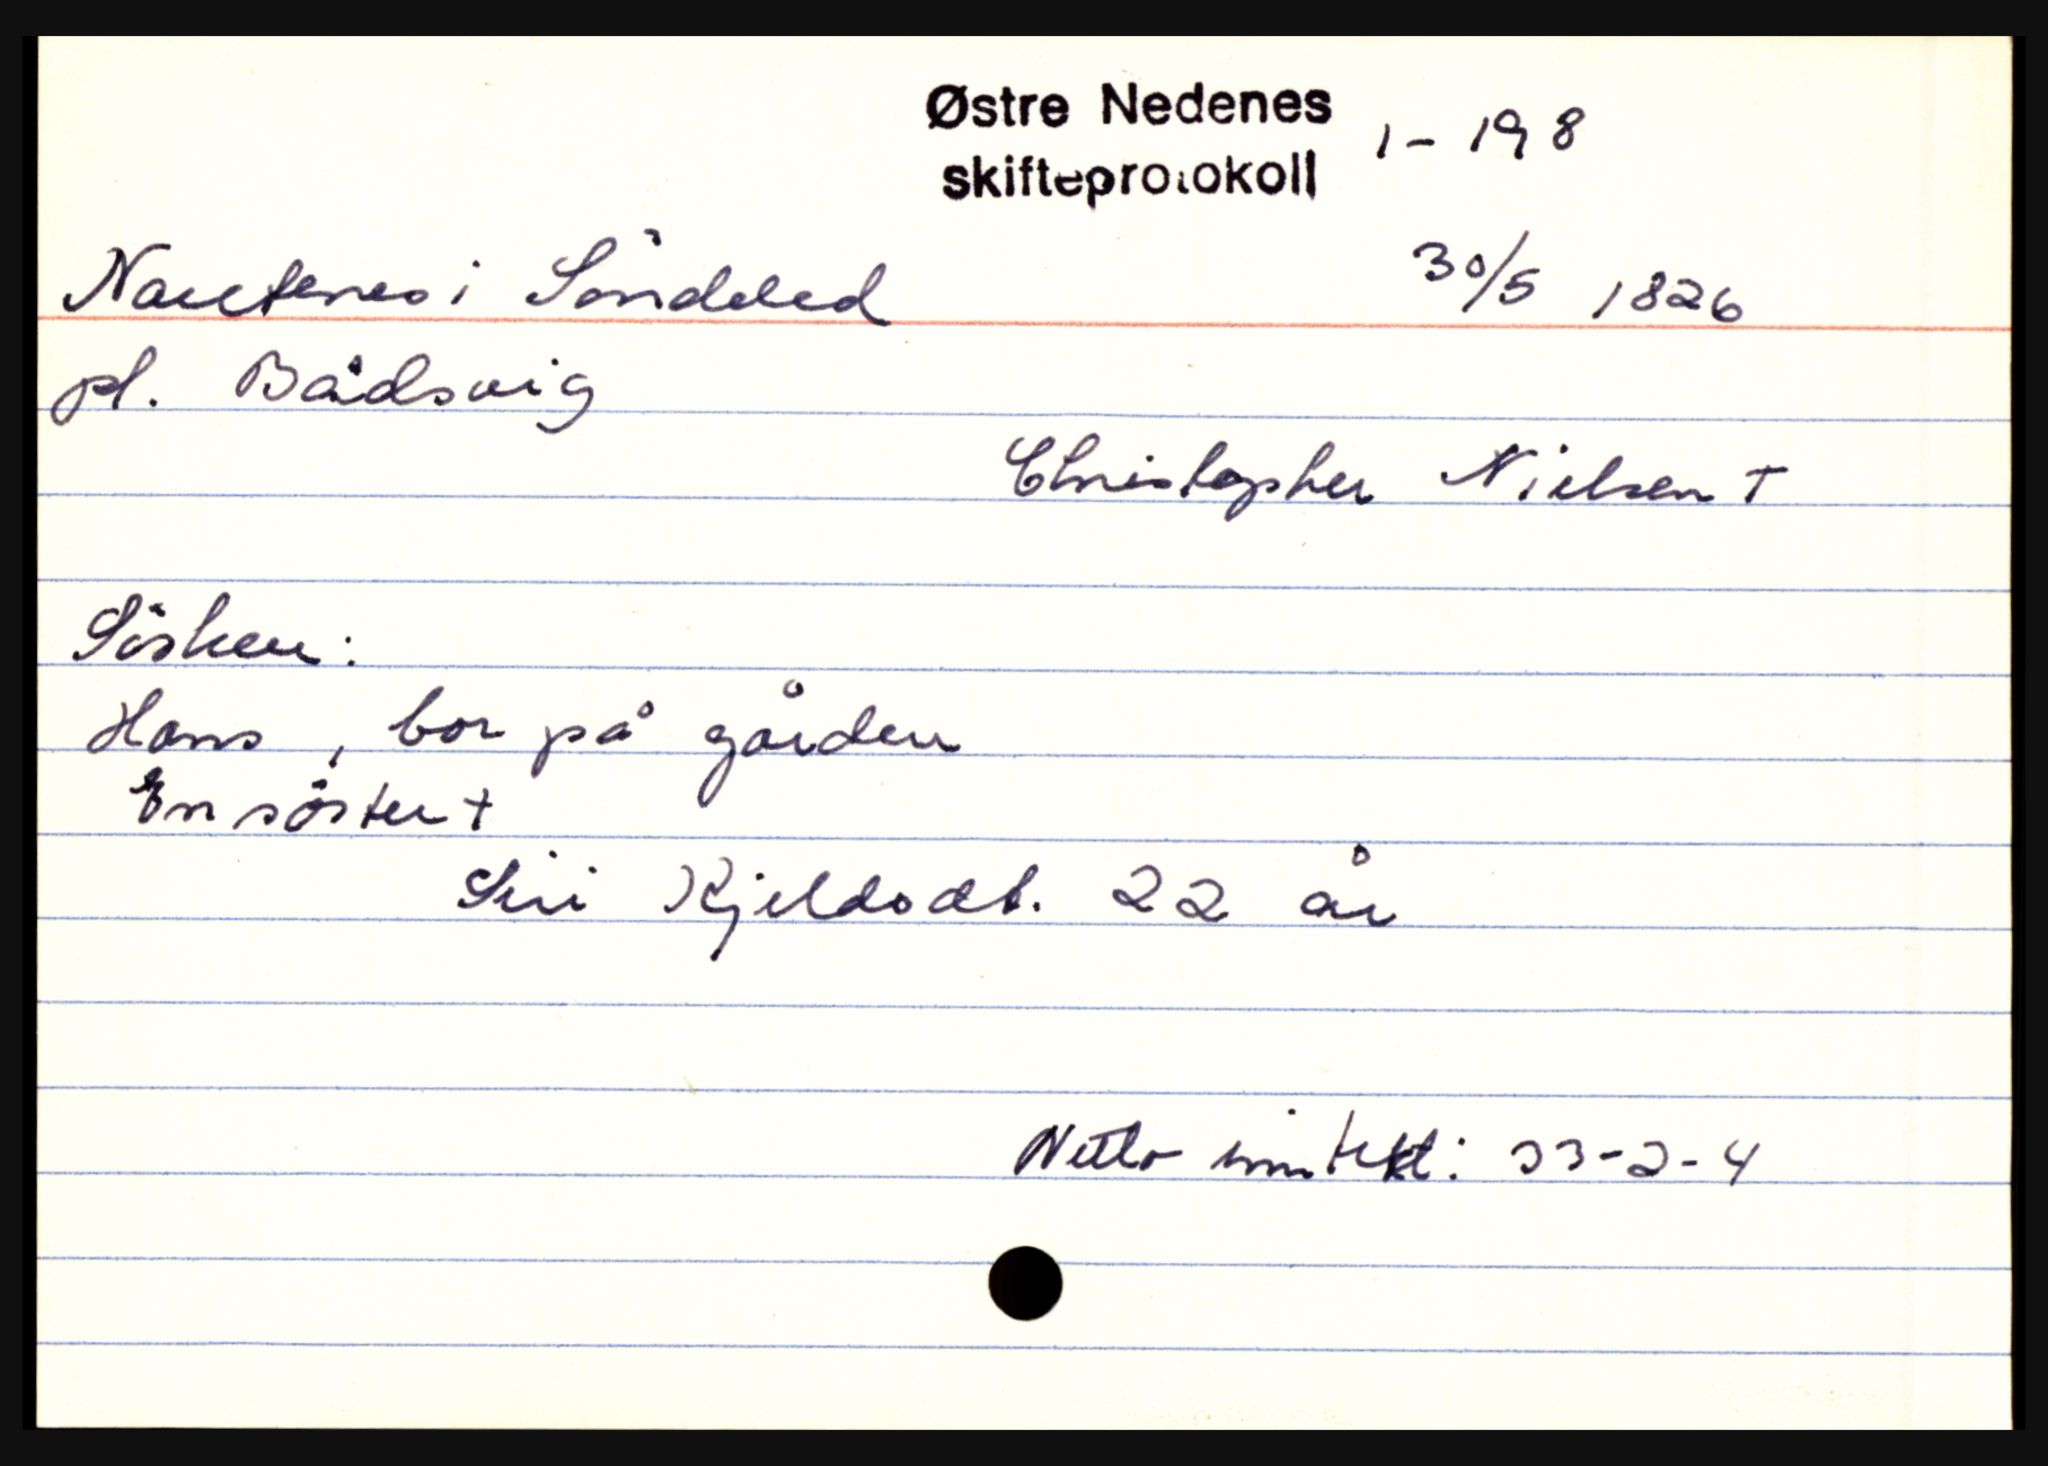 Østre Nedenes 1-198
skifteprotokoll
Nautenes i Söndeled 30/5 1826
pl. Bådsvig
Christopher Nielsen +
Sösken:
Hans, bor på gården
En söster +
Siri Kjeldsdt. 22 år
Netto inntekt: 33-2-4